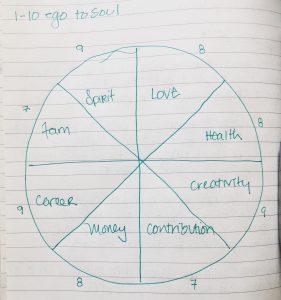 1-10 ego to soul
9
8
Spirit
Love
7
8
fam
Health
Career
Creativity
9
9
Money
Contribution
8
7